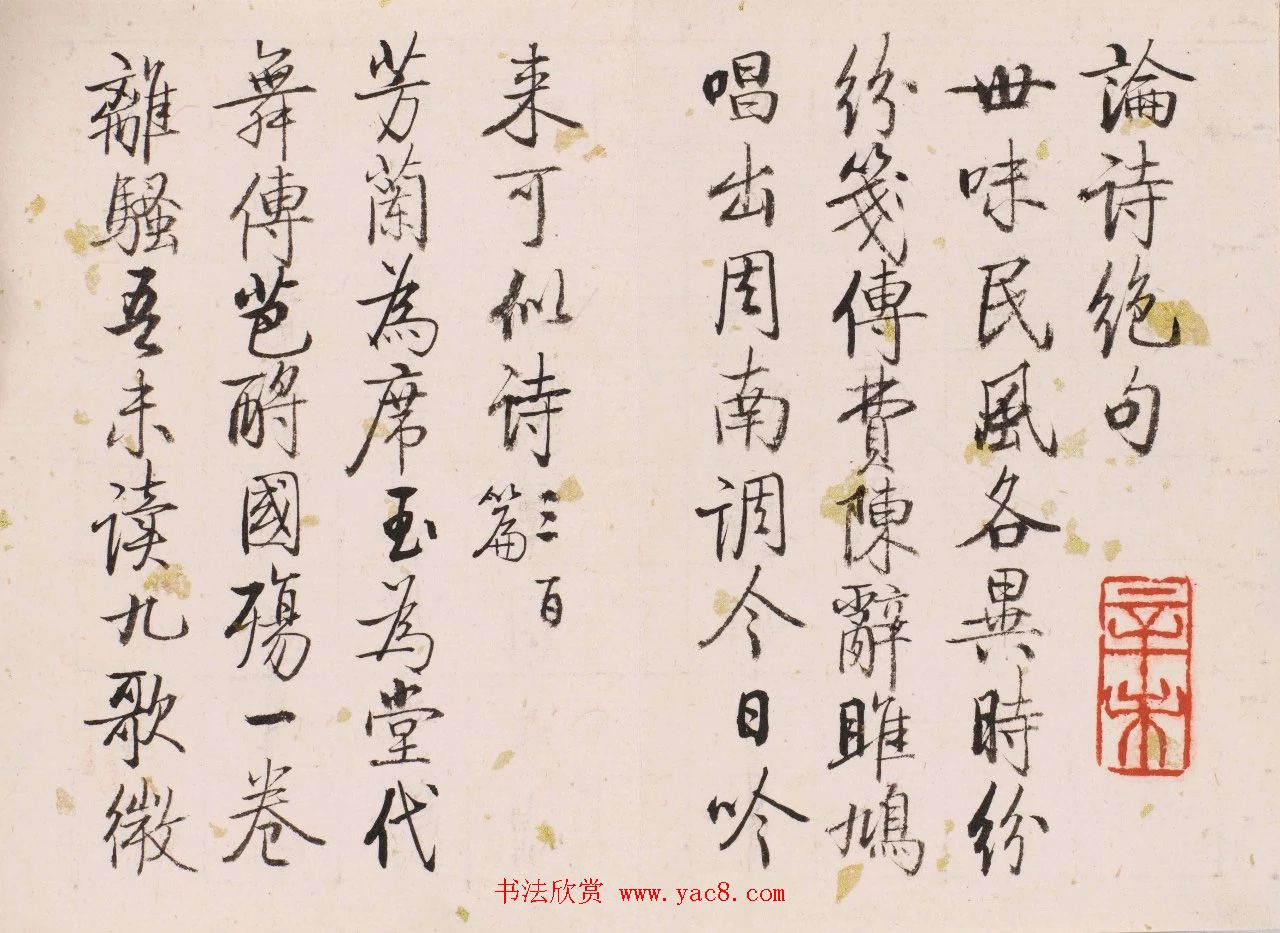 論詩絶句
世味民風各異時紛
紛箋傳費陳辭雎鳩
唱出周南調今日吟
来可似詩三百篇
芳蘭為席玉為堂代
舞傳芭酹國殤一卷
離騷吾未读九歌微
辛未
书法欣赏 www.yac8.com